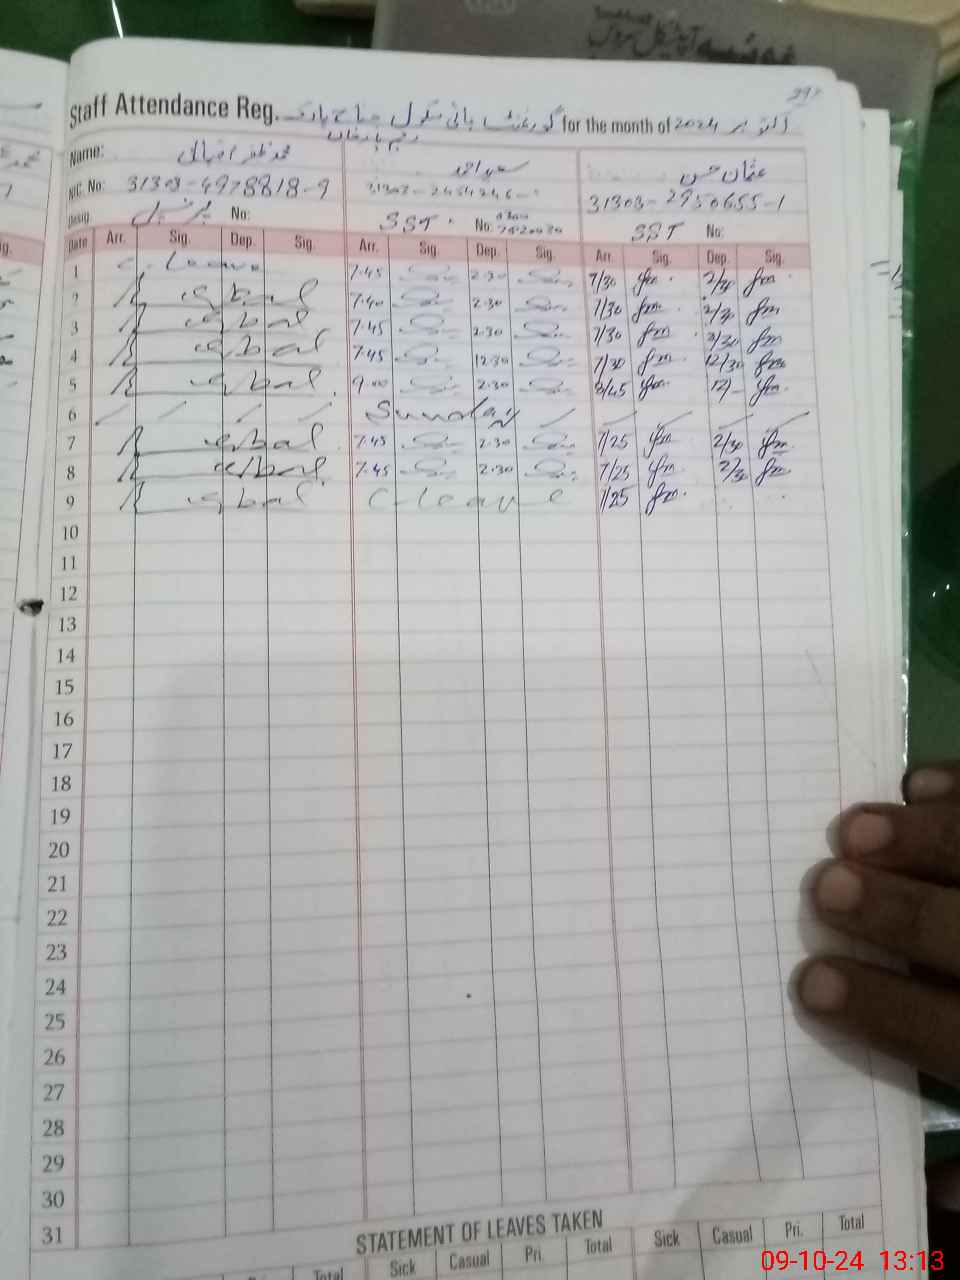 آپٹیکل سروس
293
Staff Attendance Reg. گورنمنٹ ہائی سکول جناح پارک for the month of اکتوبر 2024
رحیم یار خان
Name: محمد ظفر اقبال سعید احمد عثمان حسن
NIC. No: 31303-4978818-9 31303-2454246- 31303-2950655-1
Desig. پرنسپل No: SST No: SST No:
Date Arr. Sig. Dep. Sig. Arr. Sig. Dep. Sig. Arr. Sig. Dep. Sig.
1 C. Leave 7.45 2.30 7/30 2/30
2 Iqbal 7.40 2.30 7/30 2/30
3 Iqbal 7.45 2.30 7/30 2/30
4 Iqbal 7.45 12.30 7/30 12/30
5 Iqbal 9.00 2.30 8/45 12/-
6 Sunday
7 Iqbal 7.45 2.30 7/25 2/30
8 Iqbal 7.45 2.30 7/25 2/30
9 Iqbal C leave 7/25
10
11
12
13
14
15
16
17
18
19
20
21
22
23
24
25
26
27
28
29
30
31
STATEMENT OF LEAVES TAKEN
Total Sick Casual Pri. Total Sick Casual Pri. Total
09-10-24 13:13